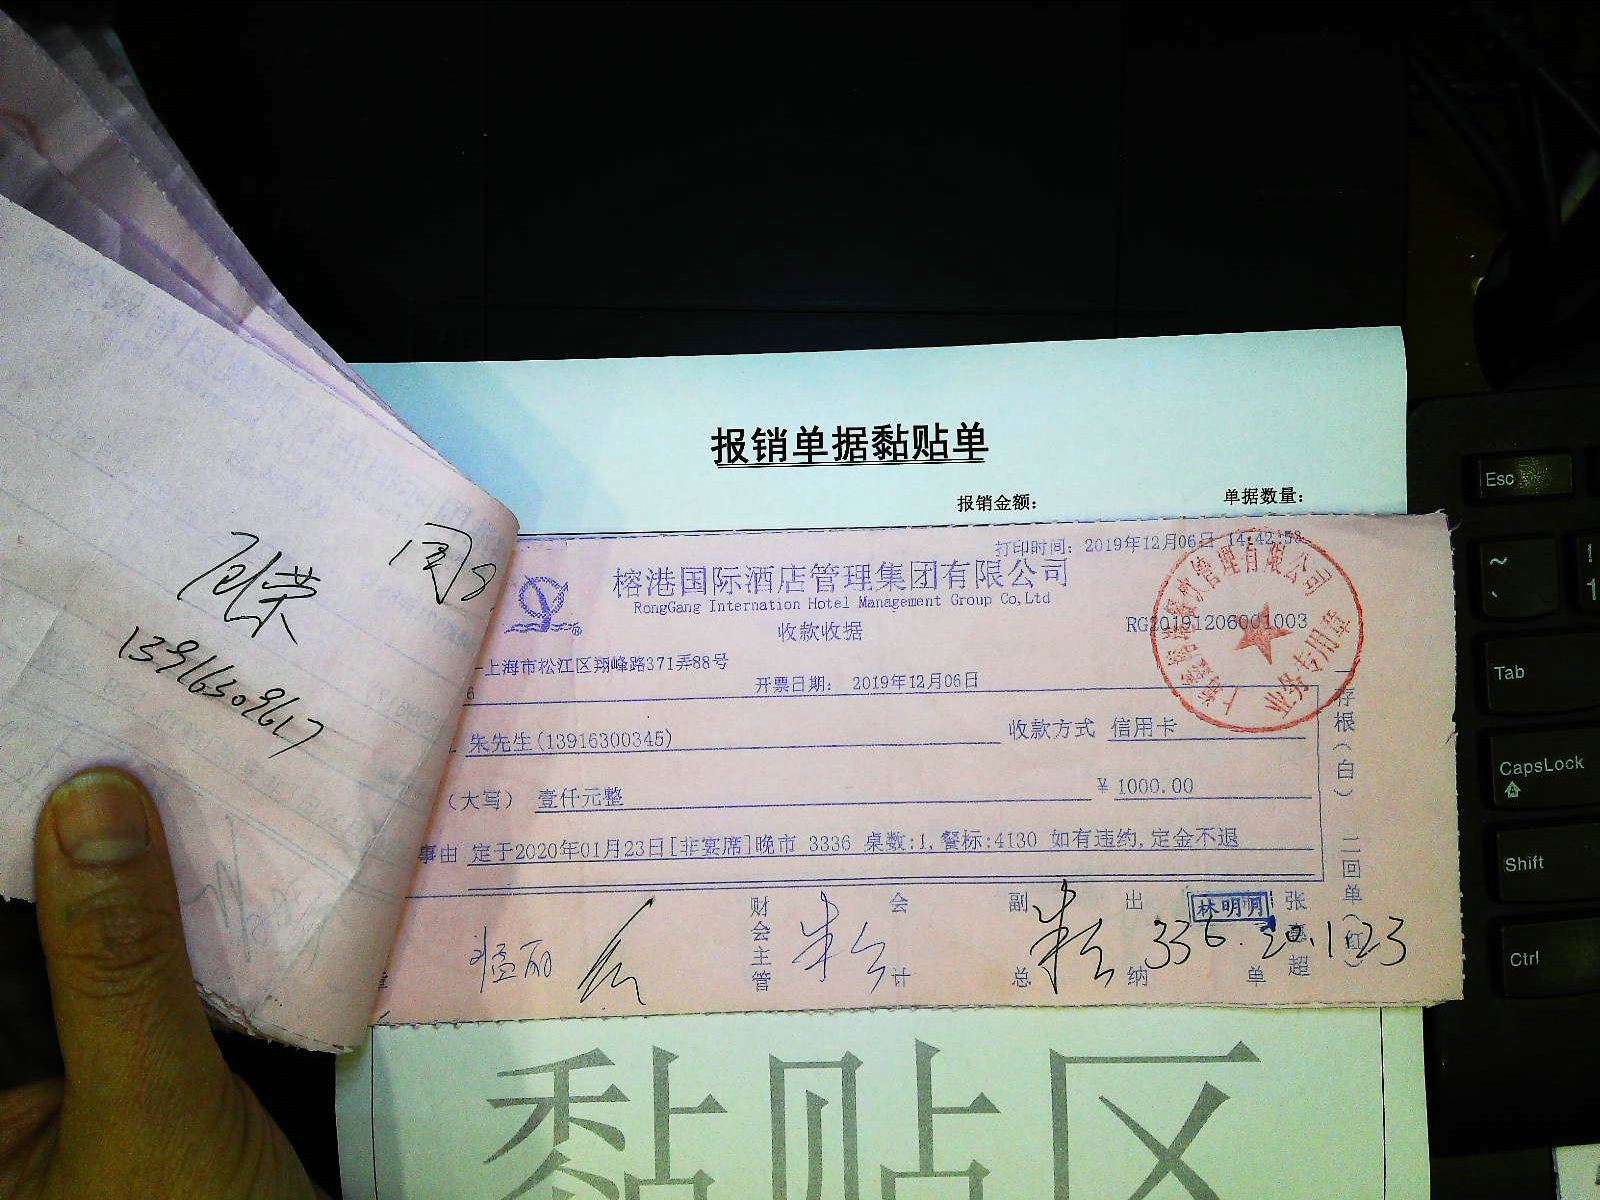 报销单据黏贴单
报销金额：
单据数量：
打印时间：2019年12月06日 14:42:53
榕港国际酒店管理集团有限公司
RongGang Internation Hotel Management Group Co,Ltd
收款收据
RG20191206001003
上海市松江区翔峰路371弄88号
6
开票日期： 2019年12月06日
朱先生(13916300345)
收款方式 信用卡
（大写） 壹仟元整
¥ 1000.00
事由 定于2020年01月23日[非宴席]晚市 3336 桌数:1,餐标:4130 如有违约,定金不退
财会主管
会计
副总
出纳
单
张 超
林明月
存根（白） 二回单（红）
餐饮管理有限公司
财务专用章
13916309617
黏贴区
Esc
~
!
1
Tab
CapsLock
Shift
Ctrl